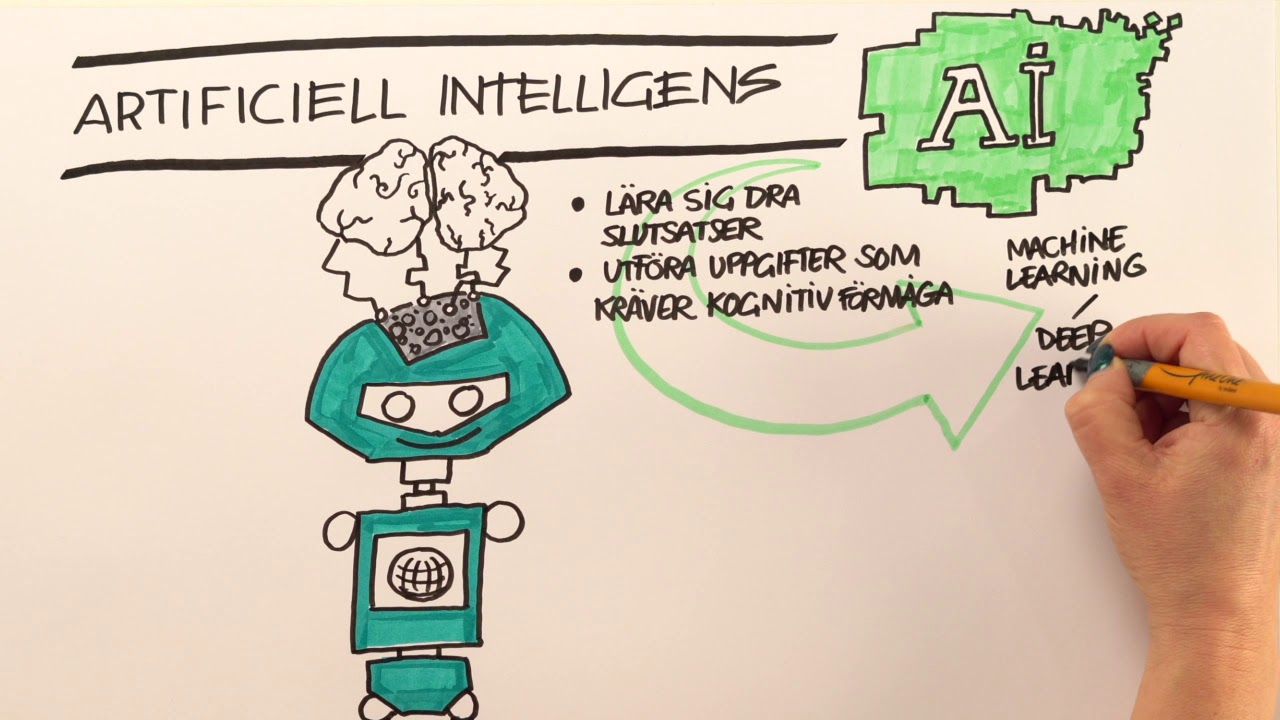 ARTIFICIELL INTELLIGENS
Ai
• LÄRA SIG DRA
SLUTSATSER
• UTFÖRA UPPGIFTER SOM
KRÄVER KOGNITIV FÖRMÅGA
MACHINE
LEARNING
/
DEEP
LEAR